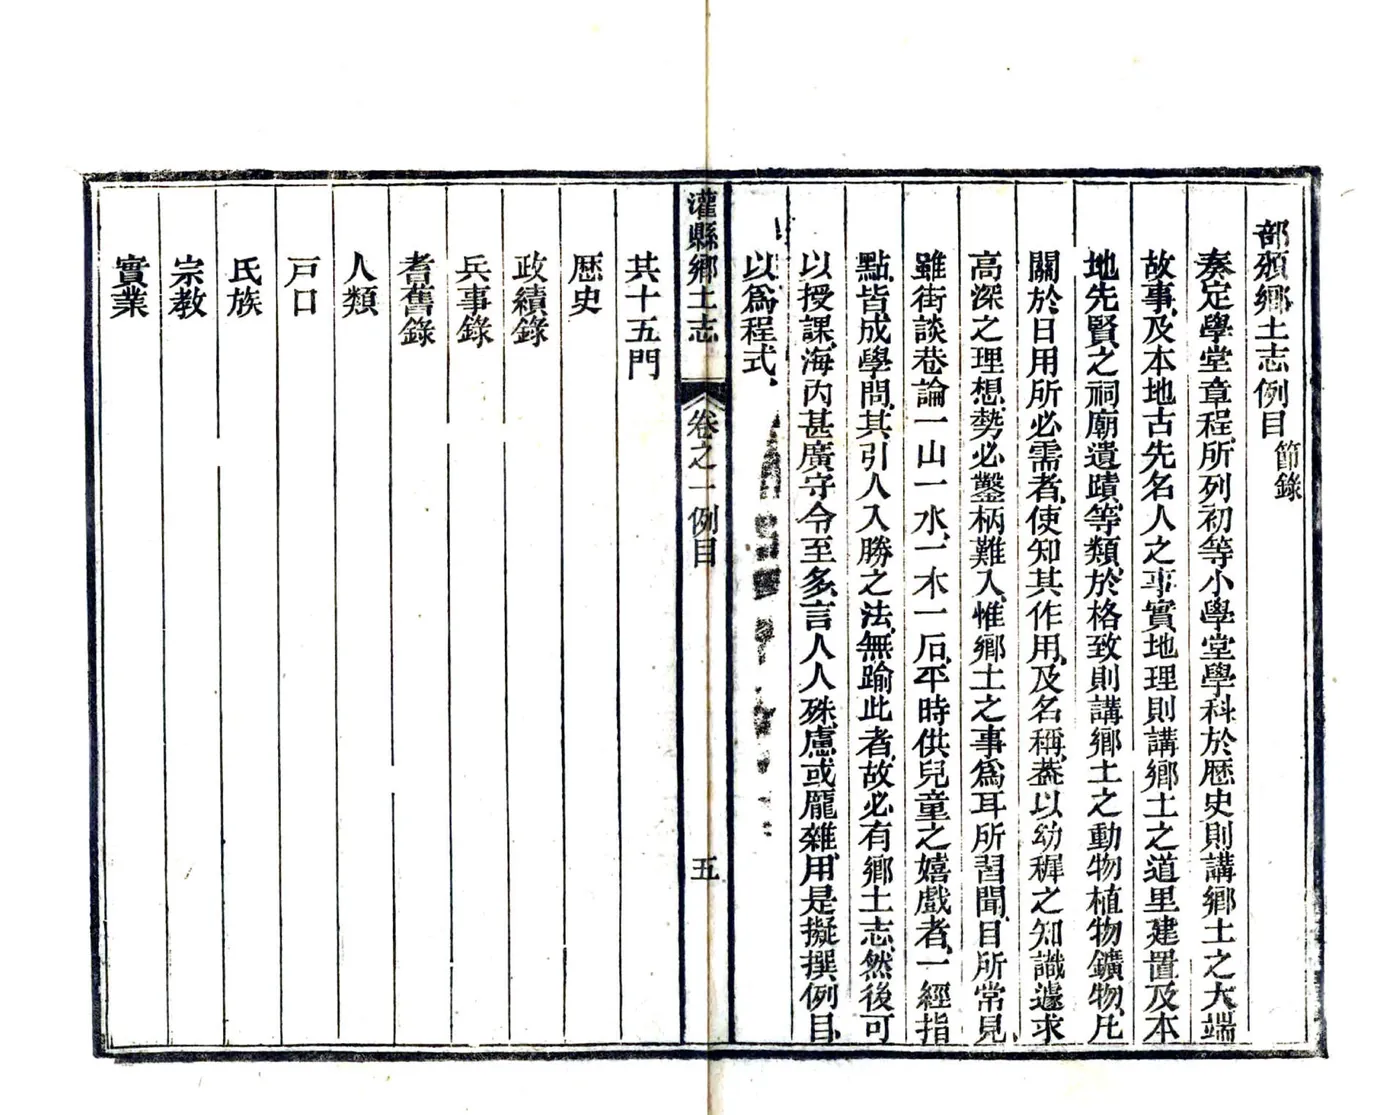 部頒鄉土志例目節錄
奏定學堂章程、所列初等小學堂學科於歷史則講鄉土之大端
故事、及本地古先名人之事實地理則講鄉土之道里建置及本
地先賢之祠廟遺蹟、等類、於格致則講鄉土之動物植物鑛物、凡
關於日用所必需者、使知其作用、及名稱、葢以幼穉之知識遽求
高深之理想、勢必鑿枘難入、惟鄉土之事爲耳所習聞、目所常見、
雖街談巷論一山一水、一木一石、平時供兒童之嬉戲者、一經指
點、皆成學問、其引人入勝之法、無踰此者、故必有鄉土志、然後可
以授課、海內甚廣守令至多、言人人殊、慮或龐雜、用是擬撰例目、
以爲程式、
灌縣鄉土志 卷之一例目 五
其十五門
歷史
政績錄
兵事錄
耆舊錄
人類
戶口
氏族
宗教
實業